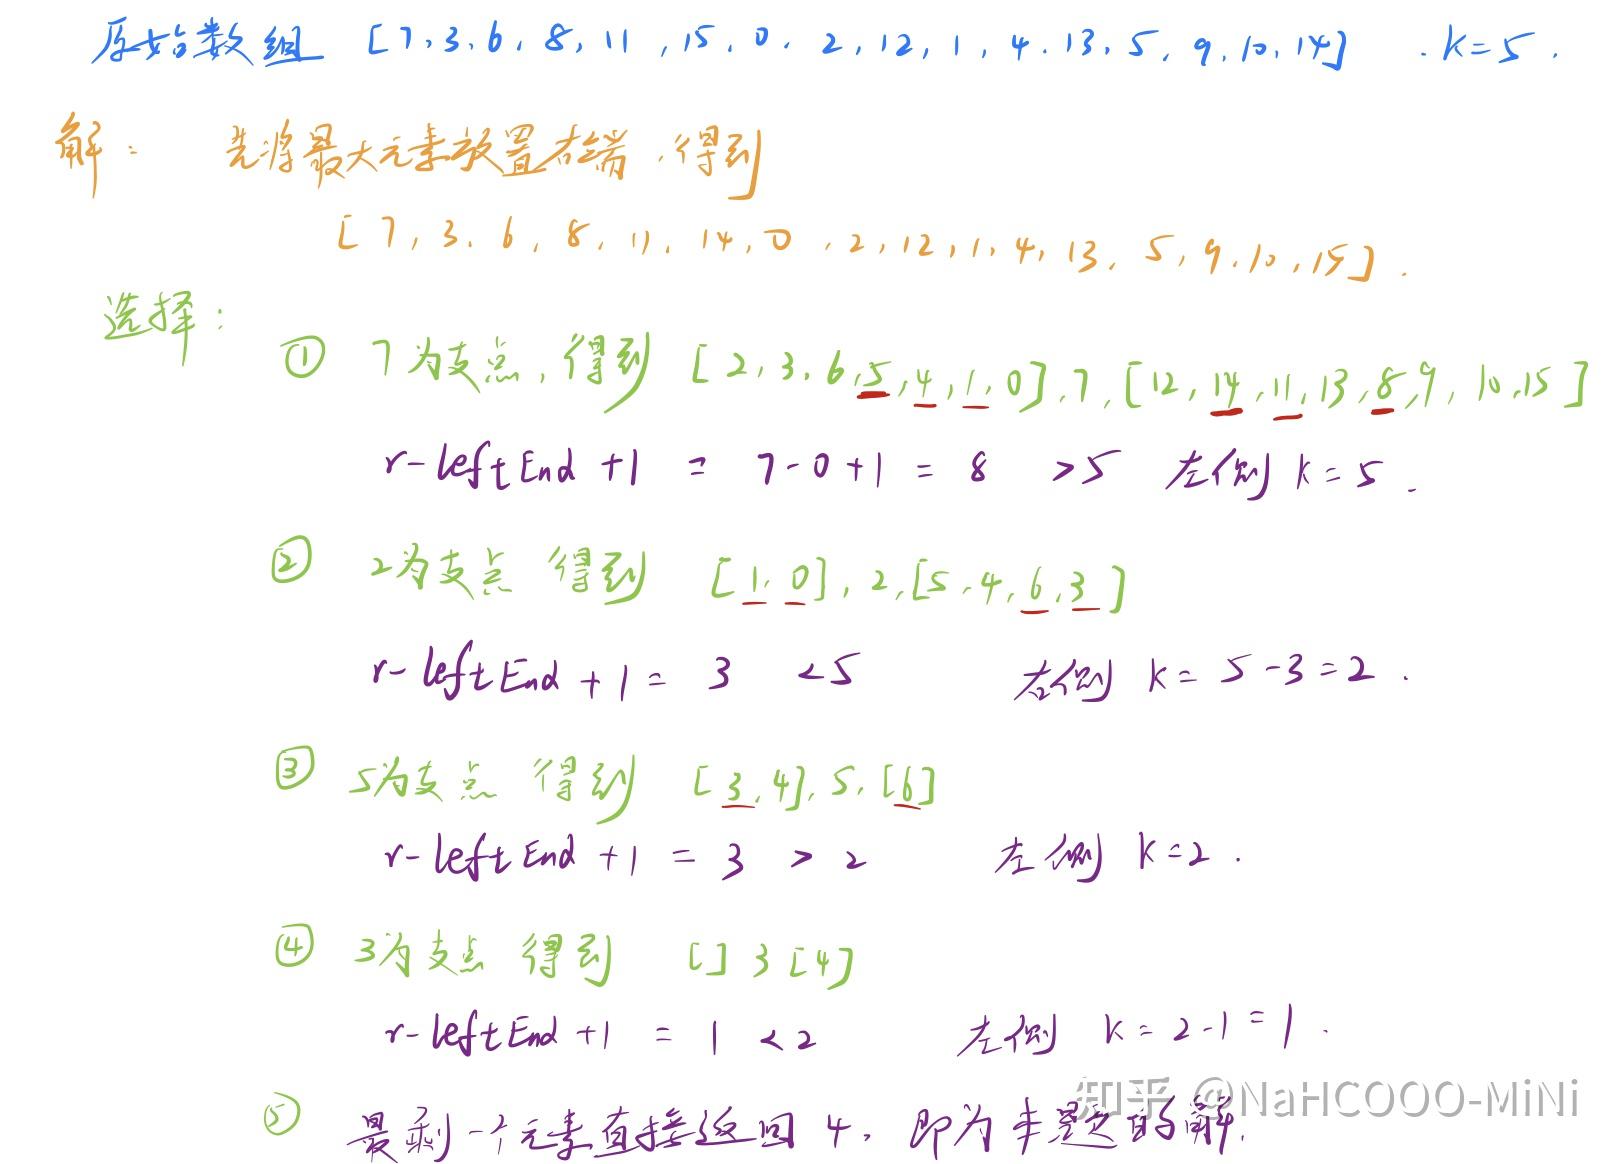 原始数组 [7,3,6,8,11,15,0,2,12,1,4,13,5,9,10,14] . k=5.
解: 先将最大元素放置右端,得到
[7,3,6,8,11,14,0,2,12,1,4,13,5,9,10,15].
选择:
① 7为支点,得到 [2,3,6,5,4,1,0],7,[12,14,11,13,8,9,10,15]
r-leftEnd+1 = 7-0+1 = 8 >5 左侧 k=5.
② 2为支点 得到 [1,0],2,[5,4,6,3]
r-leftEnd+1= 3 <5 右侧 k=5-3=2.
③ 5为支点 得到 [3,4],5,[6]
r-leftEnd+1 = 3 > 2 左侧 k=2.
④ 3为支点 得到 [] 3 [4]
r-leftEnd+1 = 1 <2 左侧 k=2-1=1.
⑤ 最剩一个元素直接返回4,即为本题的解.
知乎 @NaHCOOO-MiNi